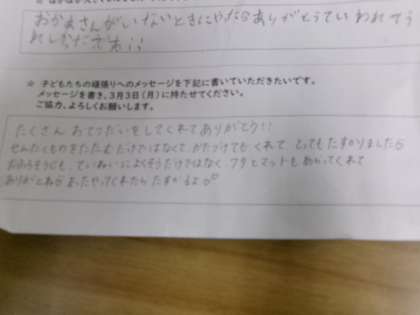 おかあさんがいないときにやったらありがとうていわれてう
れしかったです!!
☆ 子どもたちの頑張りへのメッセージを下記に書いていただきたいです。
メッセージを書き、3月3日(月)に持たせてください。
ご協力、よろしくお願いします。
たくさん おてつだいをしてくれてありがとう!!
せんたくものをたたむだけではなくて、かたづけてもくれて、とってもたすかりました
おふろそうじも、ていねいによくそうだけではなく、フタとマットもあらってくれて
ありがとね またやってくれたら たすかるよ